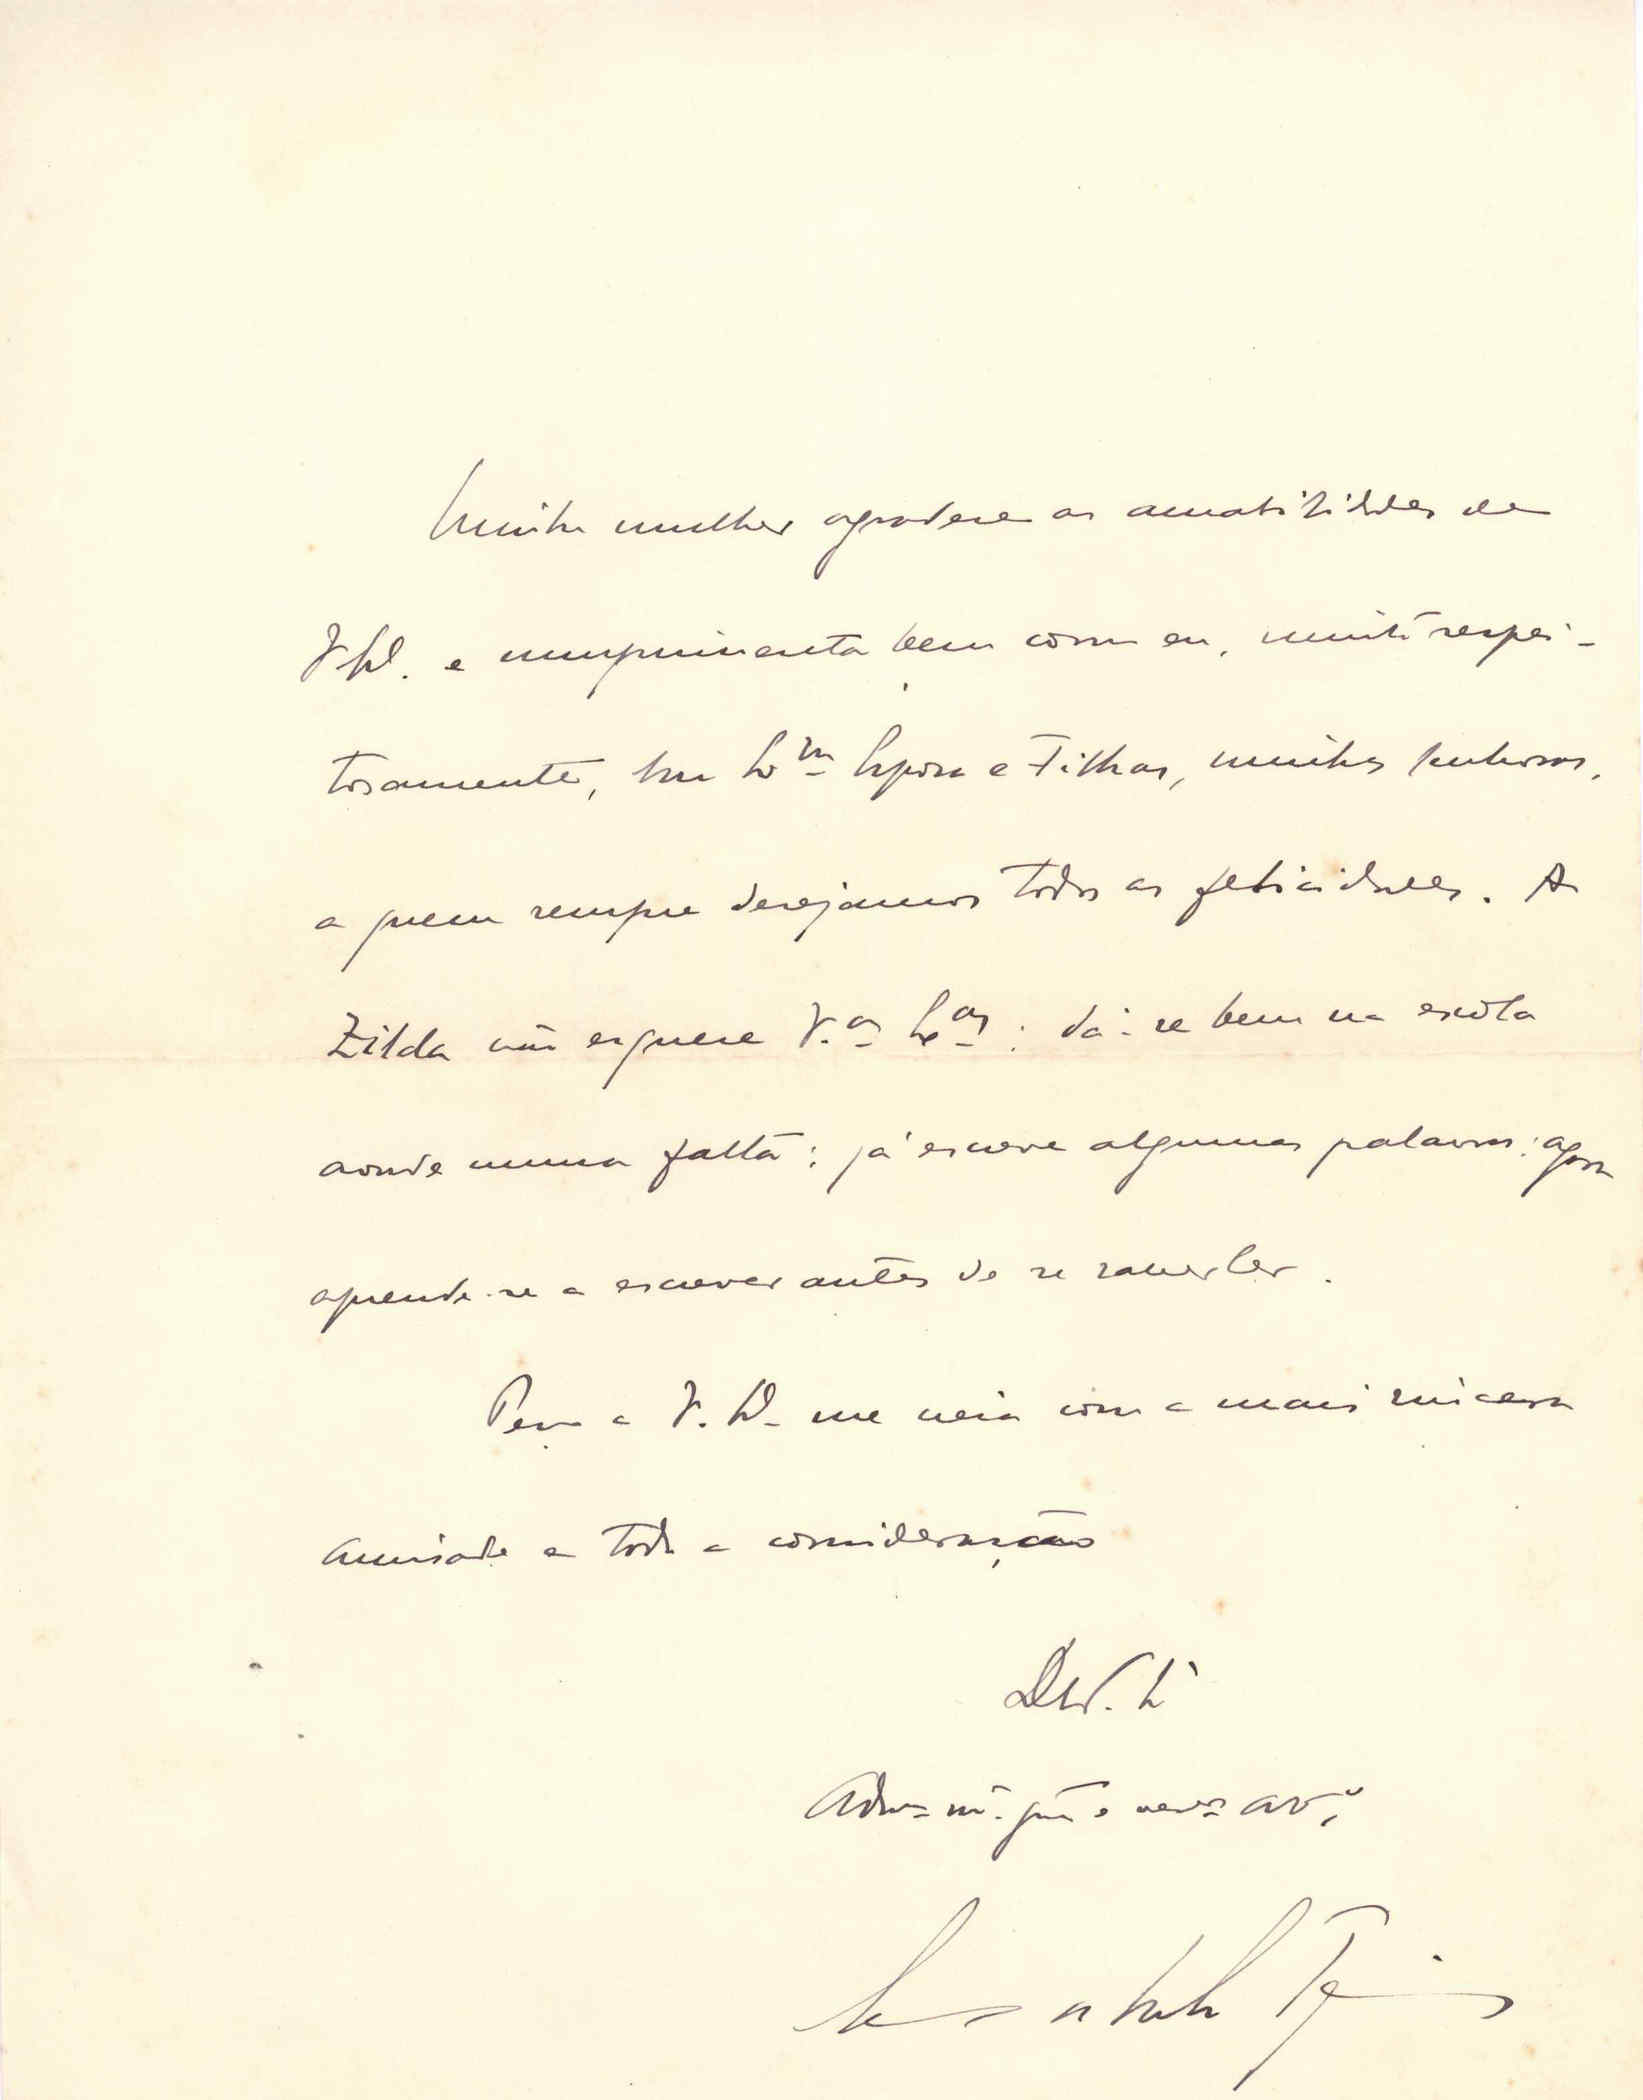 Minha mulher agradece as amabilidades de
V. Ex.ª e cumprimenta bem como eu, muito respei-
tosamente, Sua Ex.ma Esposa e Filhas, minhas senhoras,
a quem sempre desejamos todas as felicidades. A
Zilda não esquece V.as Ex.as: dá-se bem na escola
aonde nunca falta: já escreve algumas palavras: agora
aprende-se a escrever antes de se saber ler.
Peço a V. Ex.ª me creia com a mais sincera
amisade e toda a consideração
De V. Ex.ª